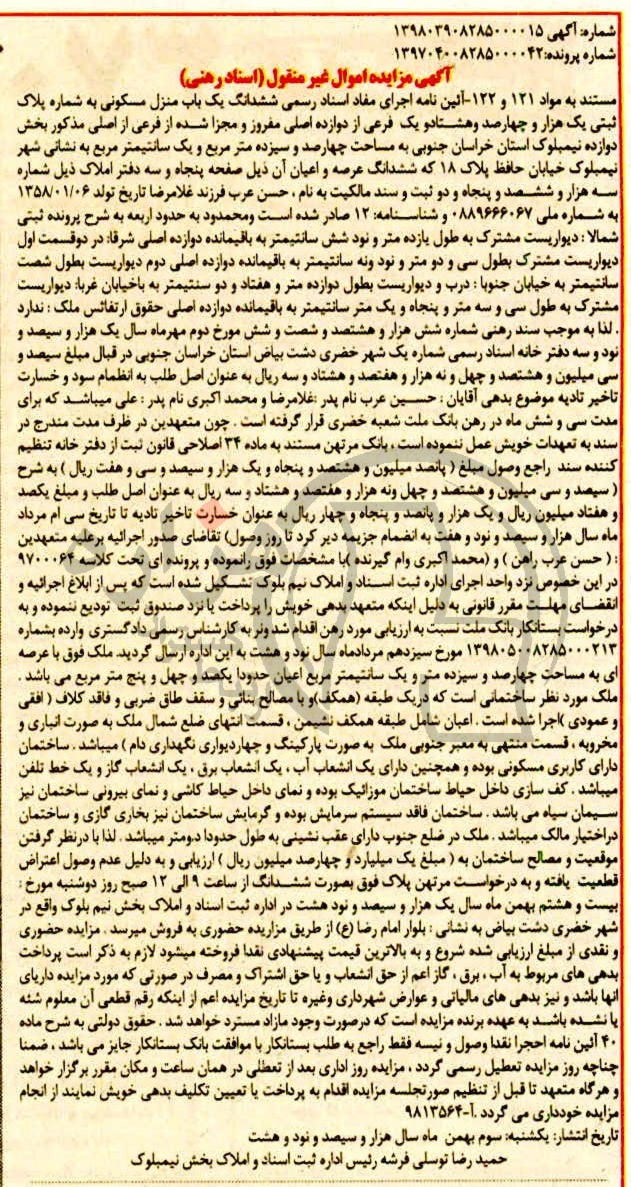 شماره: آگهی ۱۳۹۸۰۳۹۰۸۲۸۵۰۰۰۰۱۵
شماره پرونده:۱۳۹۷۰۴۰۰۸۲۸۵۰۰۰۰۴۲
آگهی مزایده اموال غیر منقول (اسناد رهنی)
مستند به مواد ۱۲۱ و ۱۲۲-آئین نامه اجرای مفاد اسناد رسمی ششدانگ یک باب منزل مسکونی به شماره پلاک
ثبتی یک هزار و چهارصد وهشتادو یک فرعی از دوازده اصلی مفروز و مجزا شده از فرعی از اصلی مذکور بخش
دوازده نیمبلوک استان خراسان جنوبی به مساحت چهارصد و سیزده متر مربع و یک سانتیمتر مربع به نشانی شهر
نیمبلوک خیابان حافظ پلاک ۱۸ که ششدانگ عرصه و اعیان آن ذیل صفحه پنجاه و سه دفتر املاک ذیل شماره
سه هزار و ششصد و پنجاه و دو ثبت و سند مالکیت به نام ، حسن عرب فرزند غلامرضا تاریخ تولد ۱۳۵۸/۰۱/۰۶
به شماره ملی ۰۸۸۹۶۶۶۰۶۷ و شناسنامه: ۱۲ صادر شده است ومحدود به حدود اربعه به شرح پرونده ثبتی
شمالا : دیواریست مشترک به طول یازده متر و نود شش سانتیمتر به باقیمانده دوازده اصلی شرقا: در دوقسمت اول
دیواریست مشترک بطول سی و دو متر و نود ونه سانتیمتر به باقیمانده دوازده اصلی دوم دیواریست بطول شصت
سانتیمتر به خیابان جنوبا : درب و دیواریست بطول دوازده متر و هفتاد و دو سنتیمتر به باخیابان غربا: دیواریست
مشترک به طول سی و سه متر و پنجاه و یک متر سانتیمتر به باقیمانده دوازده اصلی حقوق ارتفائس ملک : ندارد
. لذا به موجب سند رهنی شماره شش هزار و هشتصد و شصت و شش مورخ دوم مهرماه سال یک هزار و سیصد و
نود و سه دفتر خانه اسناد رسمی شماره یک شهر خضری دشت بیاض استان خراسان جنوبی در قبال مبلغ سیصد و
سی میلیون و هشتصد و چهل و نه هزار و هفتصد و هشتاد و سه ریال به عنوان اصل طلب به انظمام سود و خسارت
تاخیر تادیه موضوع بدهی آقایان : حسین عرب نام پدر :غلامرضا و محمد اکبری نام پدر : علی میباشد که برای
مدت سی و شش ماه در رهن بانک ملت شعبه خضری قرار گرفته است . چون متعهدین در ظرف مدت مندرج در
سند به تعهدات خویش عمل ننموده است ، بانک مرتهن مستند به ماده ۳۴ اصلاحی قانون ثبت از دفتر خانه تنظیم
کننده سند راجع وصول مبلغ ( پانصد میلیون و هشتصد و پنجاه و یک هزار و سیصد و سی و هفت ریال ) به شرح
( سیصد و سی میلیون و هشتصد و چهل ونه هزار و هفتصد و هشتاد و سه ریال به عنوان اصل طلب و مبلغ یکصد
و هفتاد میلیون ریال و یک هزار و پانصد و پنجاه و چهار ریال به عنوان خسارت تاخیر تادیه تا تاریخ سی ام مرداد
ماه سال هزار و سیصد و نود و هفت به انضمام جزیمه دیر کرد تا روز وصول) تقاضای صدور اجرائیه برعلیه متعهدین
: ( حسن عرب راهن ) و (محمد اکبری وام گیرنده )با مشخصات فوق رانموده و پرونده ای تحت کلاسه ۹۷۰۰۰۶۴
در این خصوص نزد واحد اجرای اداره ثبت اسناد و املاک نیم بلوک تشکیل شده است که پس از ابلاغ اجرائیه و
انقضای مهلت مقرر قانونی به دلیل اینکه متعهد بدهی خویش را پرداخت یا نزد صندوق ثبت تودیع ننموده و به
درخواست بستانکار بانک ملت نسبت به ارزیابی مورد رهن اقدام شد ونر به کارشناس رسمی دادگستری وارده بشماره
۱۳۹۸۰۵۰۰۸۲۸۵۰۰۰۲۱۳ مورخ سیزدهم مردادماه سال نود و هشت به این اداره ارسال گردید. ملک فوق با عرصه
ای به مساحت چهارصد و سیزده متر و یک سانتیمتر مربع اعیان حدودا یکصد و چهل و پنج متر مربع می باشد .
ملک مورد نظر ساختمانی است که دریک طبقه (همکف)و با مصالح بنائی و سقف طاق ضربی و فاقد کلاف ( افقی
و عمودی )اجرا شده است . اعیان شامل طبقه همکف نشیمن ، قسمت انتهای ضلع شمال ملک به صورت انباری و
مخروبه ، قسمت منتهی به معبر جنوبی ملک به صورت پارکینگ و چهاردیواری نگهداری دام ) میباشد . ساختمان
دارای کاربری مسکونی بوده و همچنین دارای یک انشعاب آب ، یک انشعاب برق ، یک انشعاب گاز و یک خط تلفن
میباشد . کف سازی داخل حیاط ساختمان موزائیک بوده و نمای داخل حیاط کاشی و نمای بیرونی ساختمان نیز
سیمان سیاه می باشد . ساختمان فاقد سیستم سرمایش بوده و گرمایش ساختمان نیز بخاری گازی و ساختمان
دراختیار مالک میباشد . ملک در ضلع جنوب دارای عقب نشینی به طول حدودا دومتر میباشد . لذا با درنظر گرفتن
موقعیت و مصالح ساختمان به ( مبلغ یک میلیارد و چهارصد میلیون ریال ) ارزیابی و به دلیل عدم وصول اعتراض
قطعیت یافته و به درخواست مرتهن پلاک فوق بصورت ششدانگ از ساعت ۹ الی ۱۲ صبح روز دوشنبه مورخ :
بیست و هشتم بهمن ماه سال یک هزار و سیصد و نود هشت در اداره ثبت اسناد و املاک بخش نیم بلوک واقع در
شهر خضری دشت بیاض به نشانی : بلوار امام رضا (ع) از طریق مزاریده حضوری به فروش میرسد . مزایده حضوری
و نقدی از مبلغ ارزیابی شده شروع و به بالاترین قیمت پیشنهادی نقدا فروخته میشود لازم به ذکر است پرداخت
بدهی های مربوط به آب ، برق ، گاز اعم از حق انشعاب و یا حق اشتراک و مصرف در صورتی که مورد مزایده داریای
انها باشد و نیز بدهی های مالیاتی و عوارض شهرداری وغیره تا تاریخ مزایده اعم از اینکه رقم قطعی آن معلوم شئه
یا نشده باشد به عهده برنده مزایده است که درصورت وجود مازاد مسترد خواهد شد . حقوق دولتی به شرح ماده
۴۰ آئین نامه احجرا نقدا وصول و نیسه فقط راجع به طلب بستانکار با موافقت بانک بستانکار جایز می باشد ، ضمنا
چناچه روز مزایده تعطیل رسمی گردد ، مزایده روز اداری بعد از تعطلی در همان ساعت و مکان مقرر برگزار خواهد
و هرگاه متعهد تا قبل از تنظیم صورتجلسه مزایده اقدام به پرداخت یا تعیین تکلیف بدهی خویش نمایند از انجام
مزایده خودداری می گردد .آ-۹۸۱۳۵۶۴
تاریخ انتشار: یکشنبه: سوم بهمن ماه سال هزار و سیصد و نود و هشت
حمید رضا توسلی فرشه رئیس اداره ثبت اسناد و املاک بخش نیمبلوک